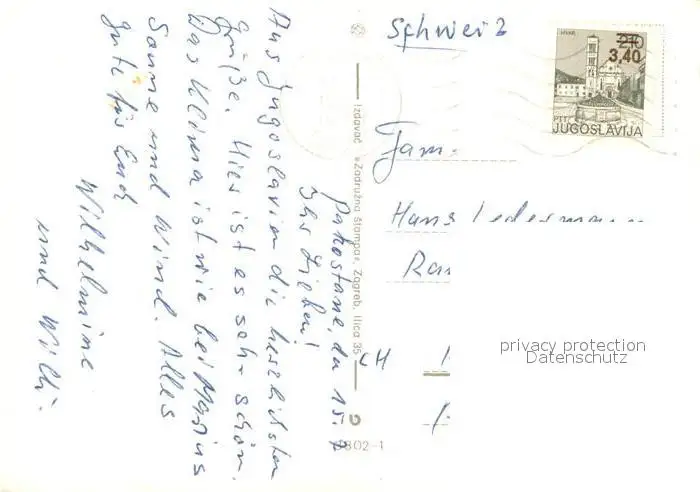 Pakostane, den 15.7
Ihr Lieben!
Aus Jugoslavien die herzlichsten
Grüße. Hier ist es sehr schön.
Das Klima ist wie bei
Sonne und Wind. Alles
Gute für Euch
Wilhelmine
und Willi.
Izdavač »Zadružna štampa«, Zagreb, Ilica 35
802-1
Schweiz
HVAR
210
3,40
PTT
JUGOSLAVIJA
Fam.
Hans Ledermann
CH
privacy protection
Datenschutz